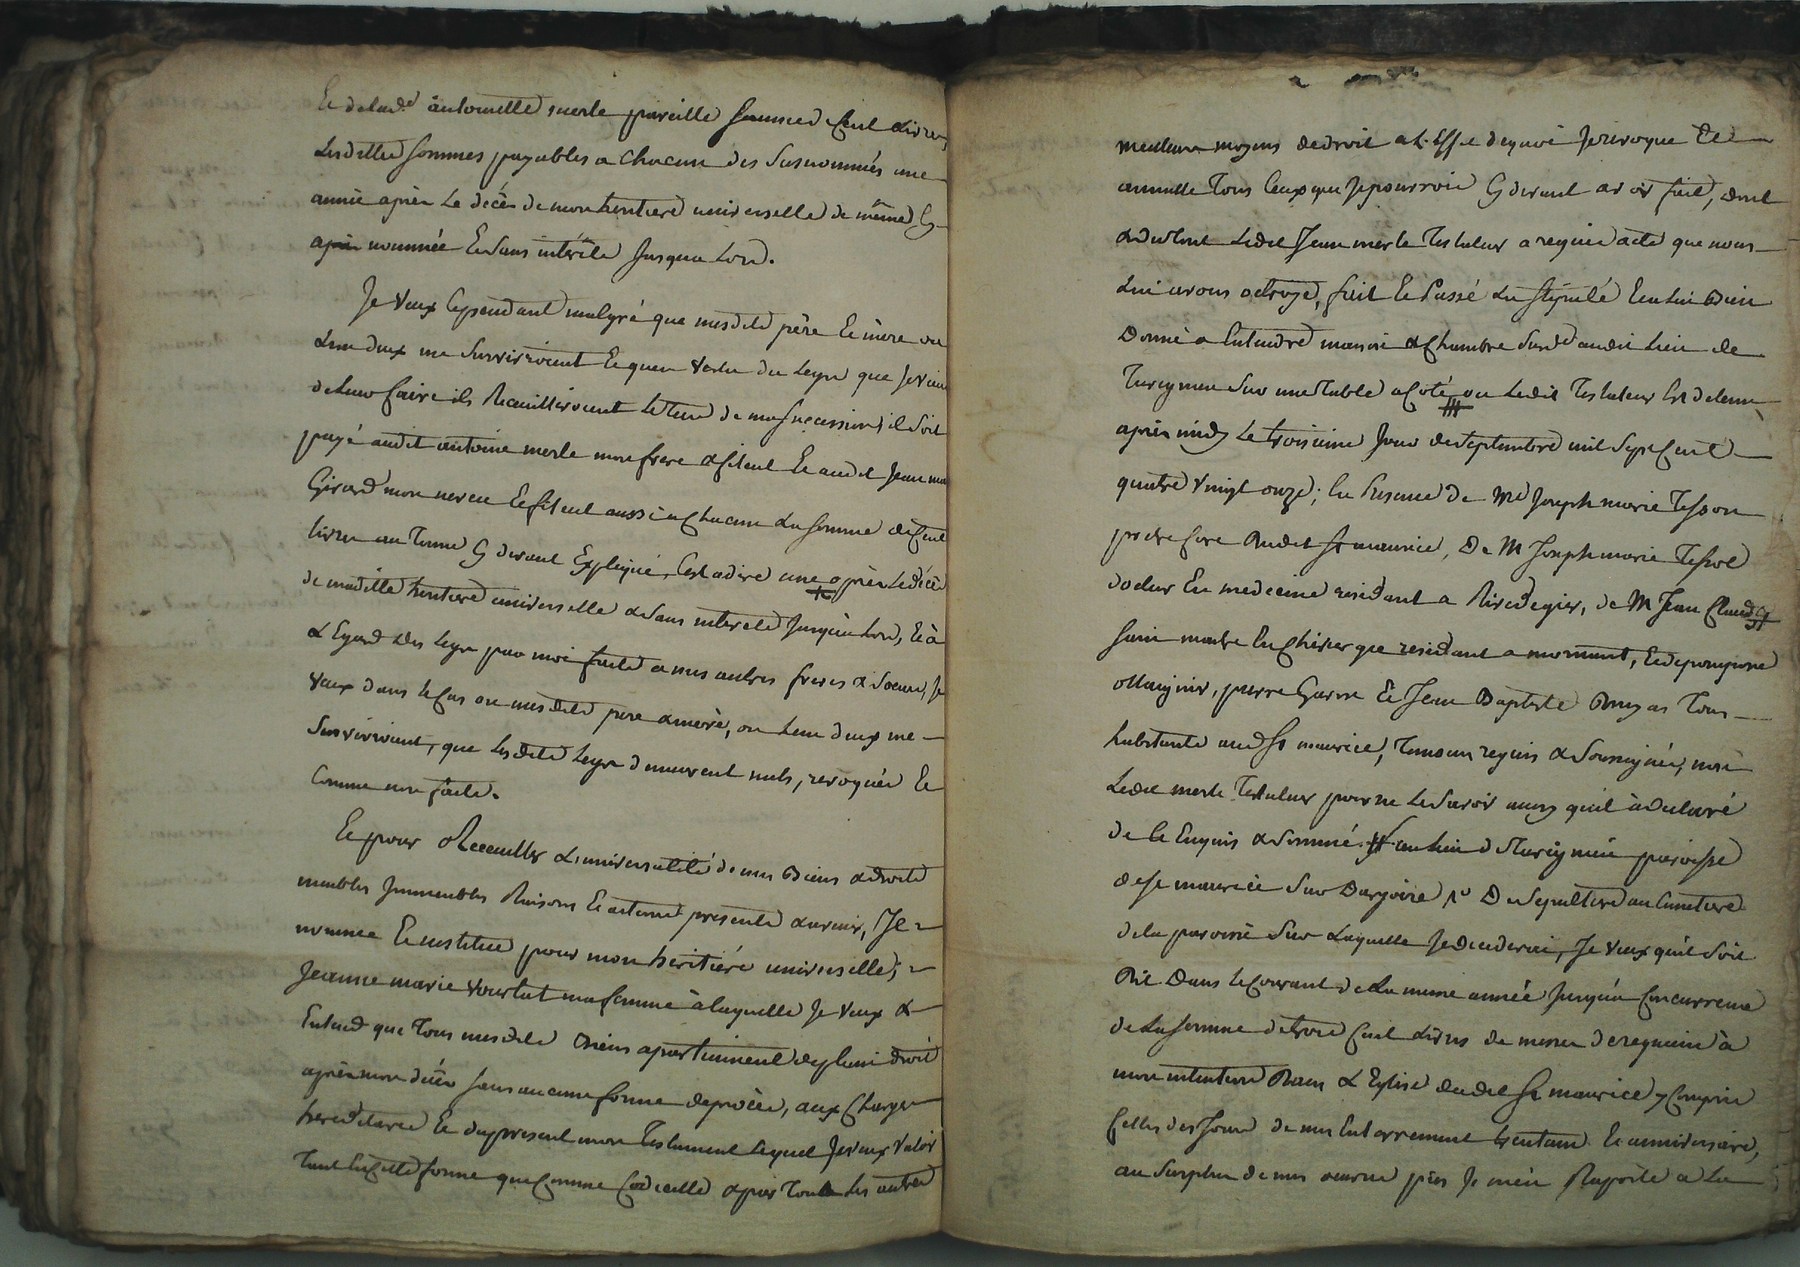 Et de lad.e antoinette merle pareille somme de Cent Livres,
Lesdittes sommes payables a Chacun des susnommés une
année après Le décès de mon heritiere universelle de même Cy
après nommée Et sans intérêts Jusqu'a Lors.
Je veux Cependant malgré que mesdits père Et mère ou
L'un d'eux me survivroient Et qu'en vertu du Legs que Je viens
de Leur faire ils Recueilliroient Le tiers de ma succession, il soit
payé audit antoine merle mon frere & filleul Et audit Jean m
Girard mon neveu Et filleul aussi a Chacun La somme de Cent
livres au Terme Cy devant Expliqué, C'est a dire une après Le décès
de maditte heritiere universelle & sans interets Jusqu'a Lors, Et à
L'Egard des Legs par moi faits a mes autres freres & Soeurs, Je
veux dans Le Cas ou mesdits pere & mere, ou L'un d'eux me
survivroient, que Lesdits Legs demeurent nuls, revoqués Et
Comme non faits.
Et pour Recueillir L'universalité de mes Biens & droits
meubles Immeubles Raisons Et actions présents & avenir, Je
nomme Et institue pour mon heritière universelle,
Jeanne marie ma femme à laquelle Je veux &
Entends que Tous mesdits Biens apartiennent de plein droit
après mon décès sans aucune forme de procès, aux Charges
hereditaires Et du present mon Testament Lequel Je veux valoir
Tant En Cette forme que Comme Codicille & par Tous Les autres
meilleurs moyens de droit a L'Effet de quoi Je revoque Et
annulle Tous Ceux que Je pourrois Cy devant avoir fait, dont
Ledit Jean merle Testateur a requis acte que nous
Lui avons octroyé, fait Et Passé Lu stipulé Et a Lui Bien
Donné a Entendre maison & Chambre audit Lieu de
sur une Table a Coté ou Ledit Testateur Est detenu
après midy Le troisieme Jour de septembre mil sept Cent
quatre vingt onze; En Presence de Me Joseph marie
pretre Curé Audit St maurice, De M Joseph marie
docteur En medecine residant a Rivedegier, de M Jean Claude
maitre En Chirurgie residant a mornant,
pierre Et Jean Baptiste Tous
habitants aud St maurice, Temoins requis & Soussignés, non
Ledit merle Testateur pour ne Le Savoir ainsy qu'il à Declaré
de Ce Enquis & Sommé. au Lieu de paroisse
de St maurice Sur Dargoire De Sepulture au Cimetiere
de la paroisse Sur Laquelle Je decederai, Je veux qu'il Soit
Dit Dans Le Courant de La meme année Jusqu'a Concurrence
de La Somme de trois Cent Livres de messes de requiem à
mon intention Dans L'Eglise dudit St maurice y Compris
Celles des Jours de mes Enterrement trentain Et anniversaire,
au Surplus de mes œuvres pies Je m'en Raporte a La